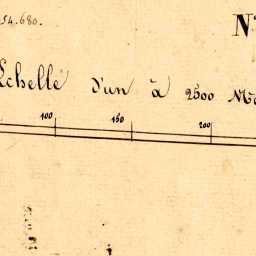 54.680.
N
Echelle d'un à 2500 Mè
100 150 200